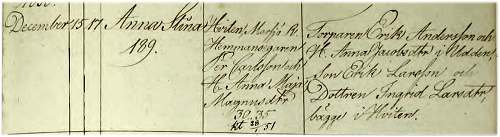 December 15. 17 Anna Stina
189.
Hvilen, Marsjö R.
Hemmansegaren
Per Carlsson och
H. Anna Maja
Magnusdtr
30. 35
kl 28/1 51
Torparen Erik Andersson och
H. Anna Jacobsdtr i Udden,
Son Erik Larsson och
Dottren Ingrid Larsdtr,
bägge i Hvilen.